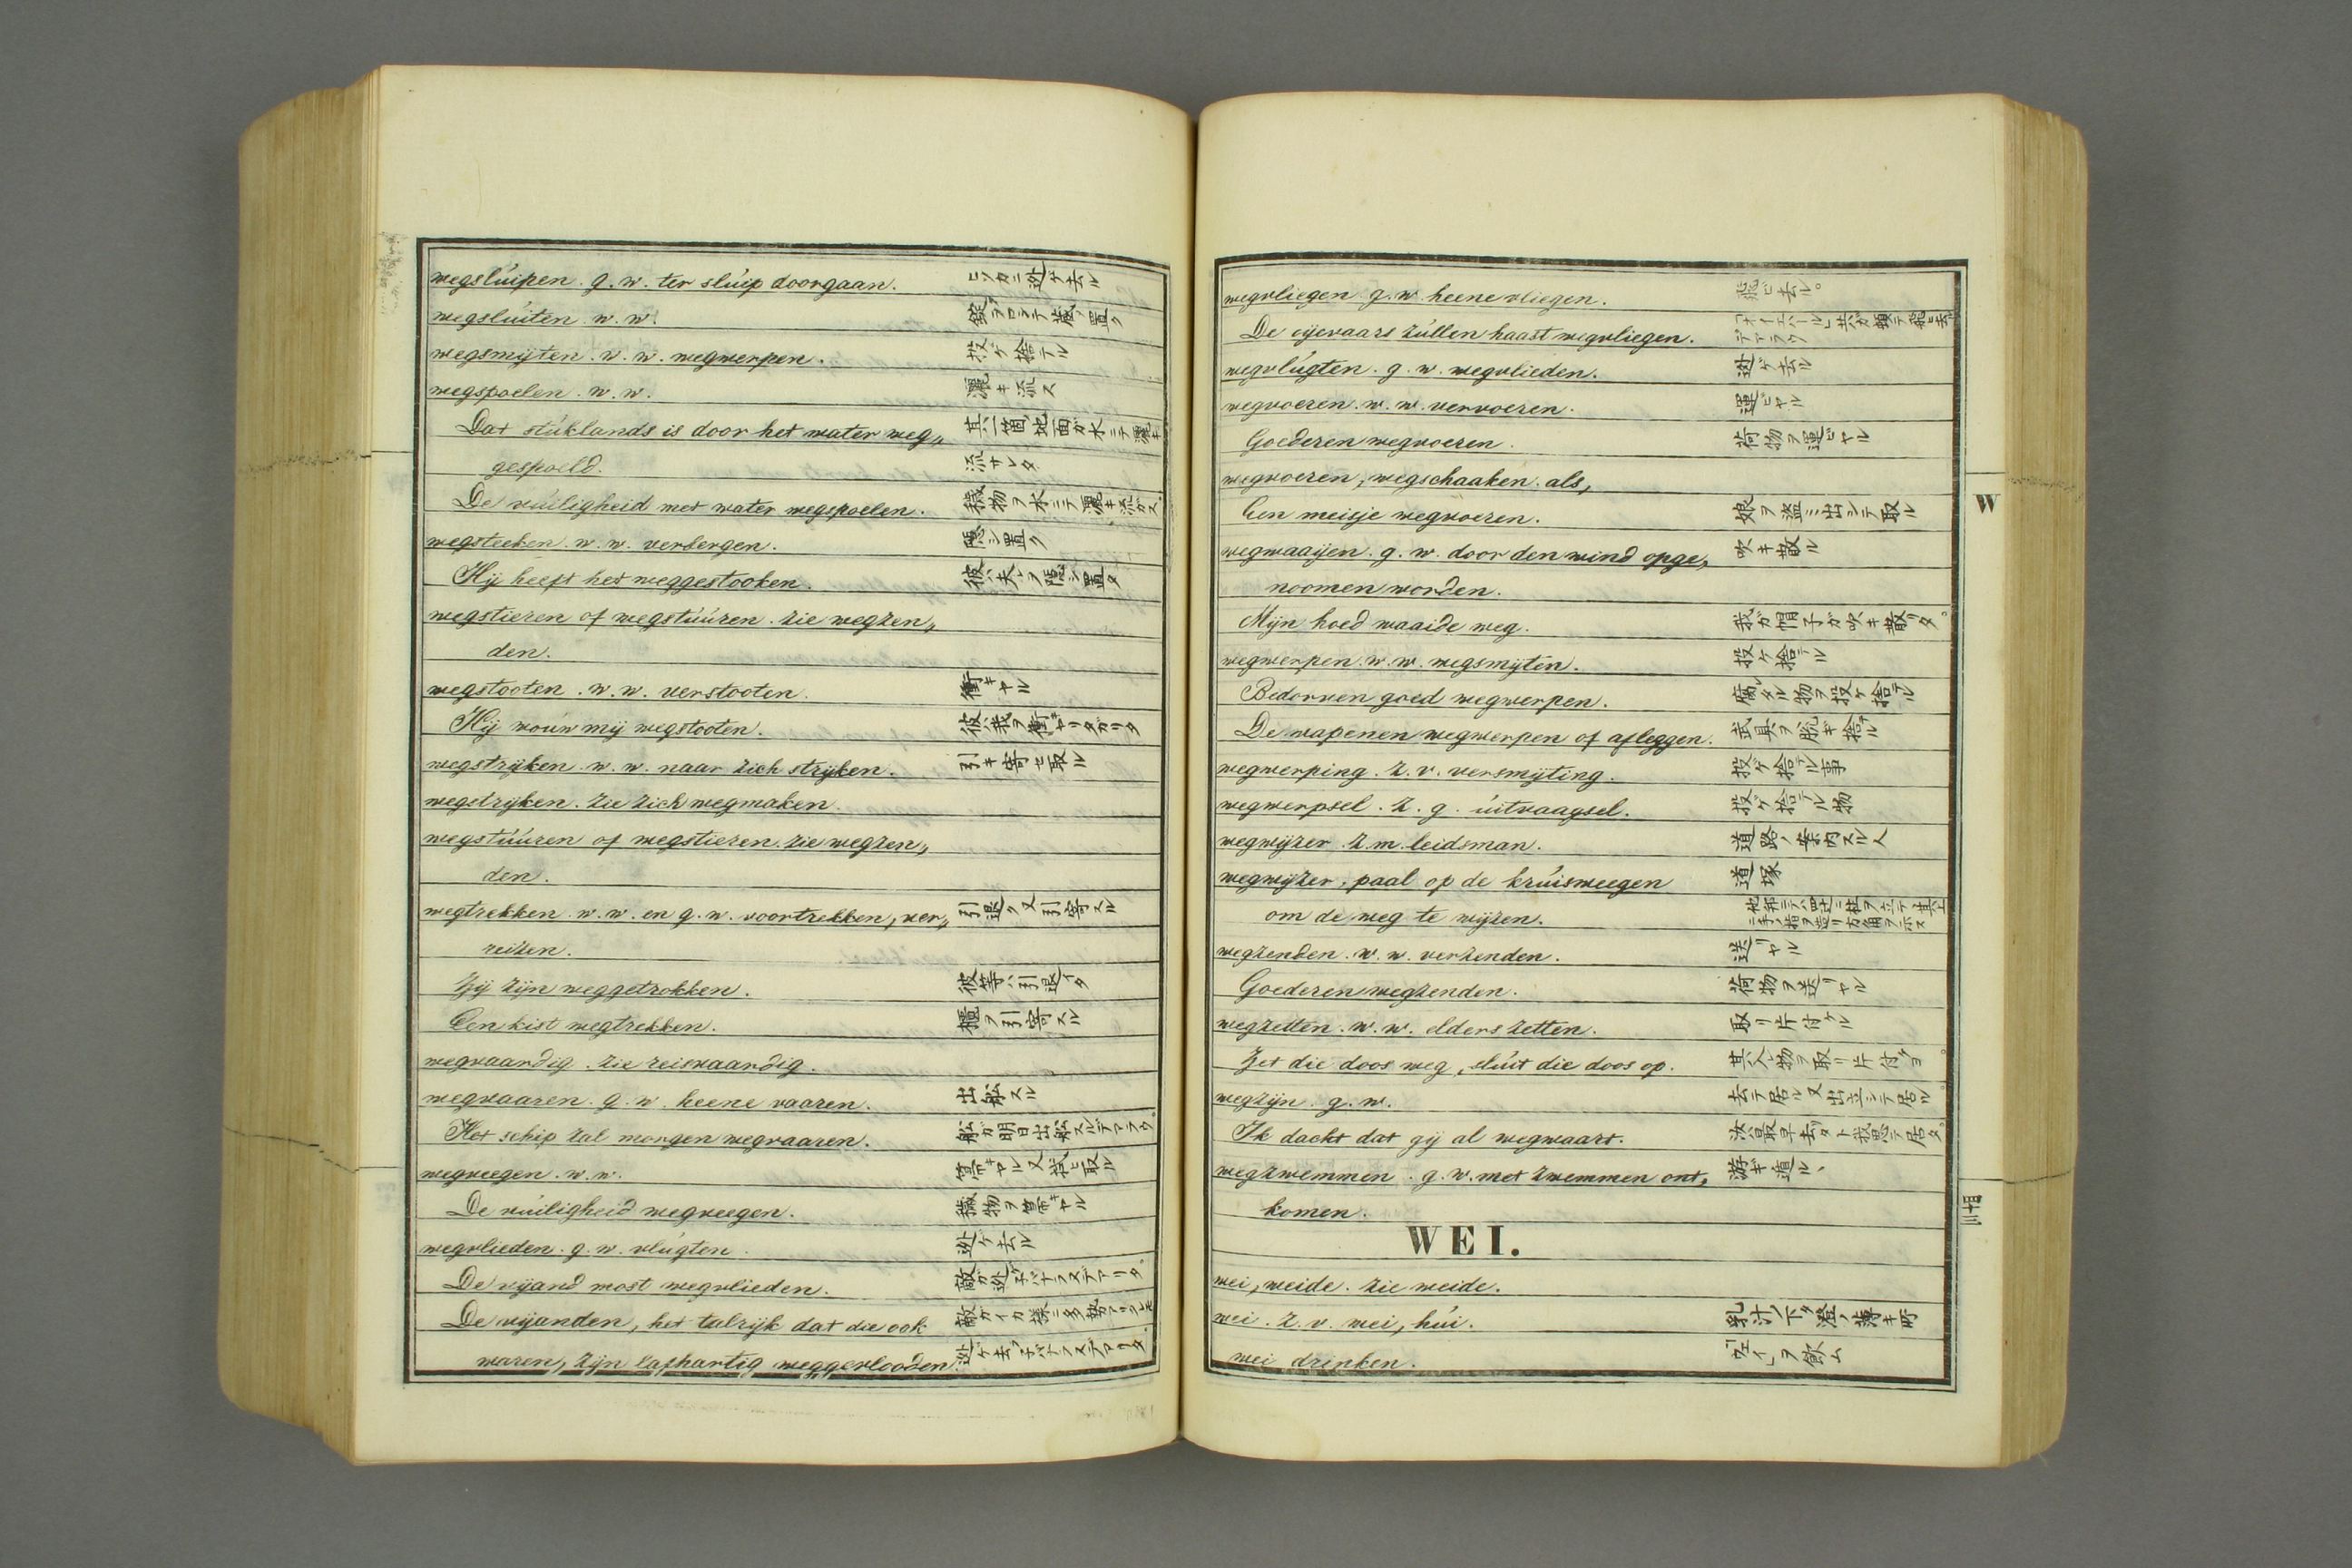 wegslúipen. g. w. ter slúip doorgaan. ヒソカニ迯ケ去ル
wegslúiten. w. w. 錠ヲロシテ蔵ノ置ク
wegsmijten. w. w. wegwerpen. 投ケ捨テル
wegspoelen. w. w. 灑キ流ス
Dat stúklands is door het water weg„ 其一箇ノ地面ガ水ニテ灑キ
gespoeld. 流サレタ
De vúiligheid met water wegspoelen. 穢物ヲ水ニテ灑キ流ガス。
wegsteeken. w. w. verbergen. 隠シ置ク
Hij heeft het weggestooken. 彼ハ夫レヲ隠シ置タ
wegstieren of wegstúúren. zie wegzen„
den.
wegstooten. w. w. verstooten. 衝キヤル
Hij woúw mij wegstooten. 彼ハ我ヲ衝キヤリタガリタ
wegstrijken. w. w. naar zich strijken. 引キ寄セ取ル
wegstrijken. zie zich wegmaken.
wegstúúren of wegstieren. zie wegzen„
den.
wegtrekken. w. w. en g. w. voortrekken, ver„ 引退ク又引寄スル
reizen.
Zij zijn weggetrokken. 彼等ハ引退イタ
Een kist wegtrekken. 櫃ヲ引寄スル
wegvaardig. zie reisvaardig.
wegvaaren. g. w. heene vaaren. 出舩スル
Het schip zal morgen wegvaaren. 舩ガ明日出舩スルデアラウ。
wegveegen. w. w. 箒キヤル又拭ヒ取ル
De vúiligheid wegveegen. 穢物ヲ箒キヤル
wegvlieden. g. w. vlúgten. 迯ケ去ル
De vijand most wegvlieden. 敵ガ迯ゲ子バナラヌデアリタ。
De vijanden, het talrijk dat die ook 敵ガイカ様ニ多勢アリタレトモ
waren, zijn lafhartig weggevlooden. 迯ケ去ラ子バナラヌデアリタ。
wegvliegen. g. w. heene vliegen. 飛ヒ去ル。
De oijevaars zúllen haast wegvliegen. 「オーイハール」共ガ頓テ飛ヒ去ル
デアラウ
wegvlúgten. g. w. wegvlieden. 迯ケ去ル
wegvoeren. w. w. vervoeren. 運ビヤル
Goederen wegvoeren. 荷物ヲ運ビヤル
wegvoeren, wegschaaken. als,
Een meisje wegvoeren. 娘ヲ盗ミ出シテ取ル
wegwaaijen. g. w. door den wind opge„ 吹キ散ル
noomen worden.
Mijn hoed waaide weg. 我ガ帽子ガ吹キ散リタ。
wegwerpen. w. w. wegsmijten. 投ケ捨テル
Bedorven goed wegwerpen. 腐レタル物ヲ投ケ捨テル
De wapenen wegwerpen of afleggen. 武具ヲ脱ギ捨テル
wegwerping. z. v. versmijting. 投ゲ捨テル事
wegwerpsel. z. g. úitvaagsel. 投ゲ捨テル物
wegwijzer. z. m. leidsman. 道路ノ案内スル人
wegwijzer, paal op de krúisweegen 道塚
om de weg te wijzen.
wegzenden. w. w. verzenden. 送リヤル
Goederen wegzenden. 荷物ヲ送リヤル
wegzetten. w. w. elders zetten. 取リ片付ケル
Zet die doos weg, slúit die doos op. 其入物ヲ取リ片付ケヨ。
wegzijn. g. w. 去テ居ル又出立シテ居ル。
Ik dacht dat gij al wegwaart. 汝ハ最早去リタト我思テ居タ。
wegzwemmen. g. w. met zwemmen ont„ 游ギ遁ル、
komen.
WEI.
wei, weide. zie weide.
wei. z. v. wei, húi. 乳汁ノ下タ澄ノ薄キ所
wei drinken. 「ウェイ」ヲ飲ム
W